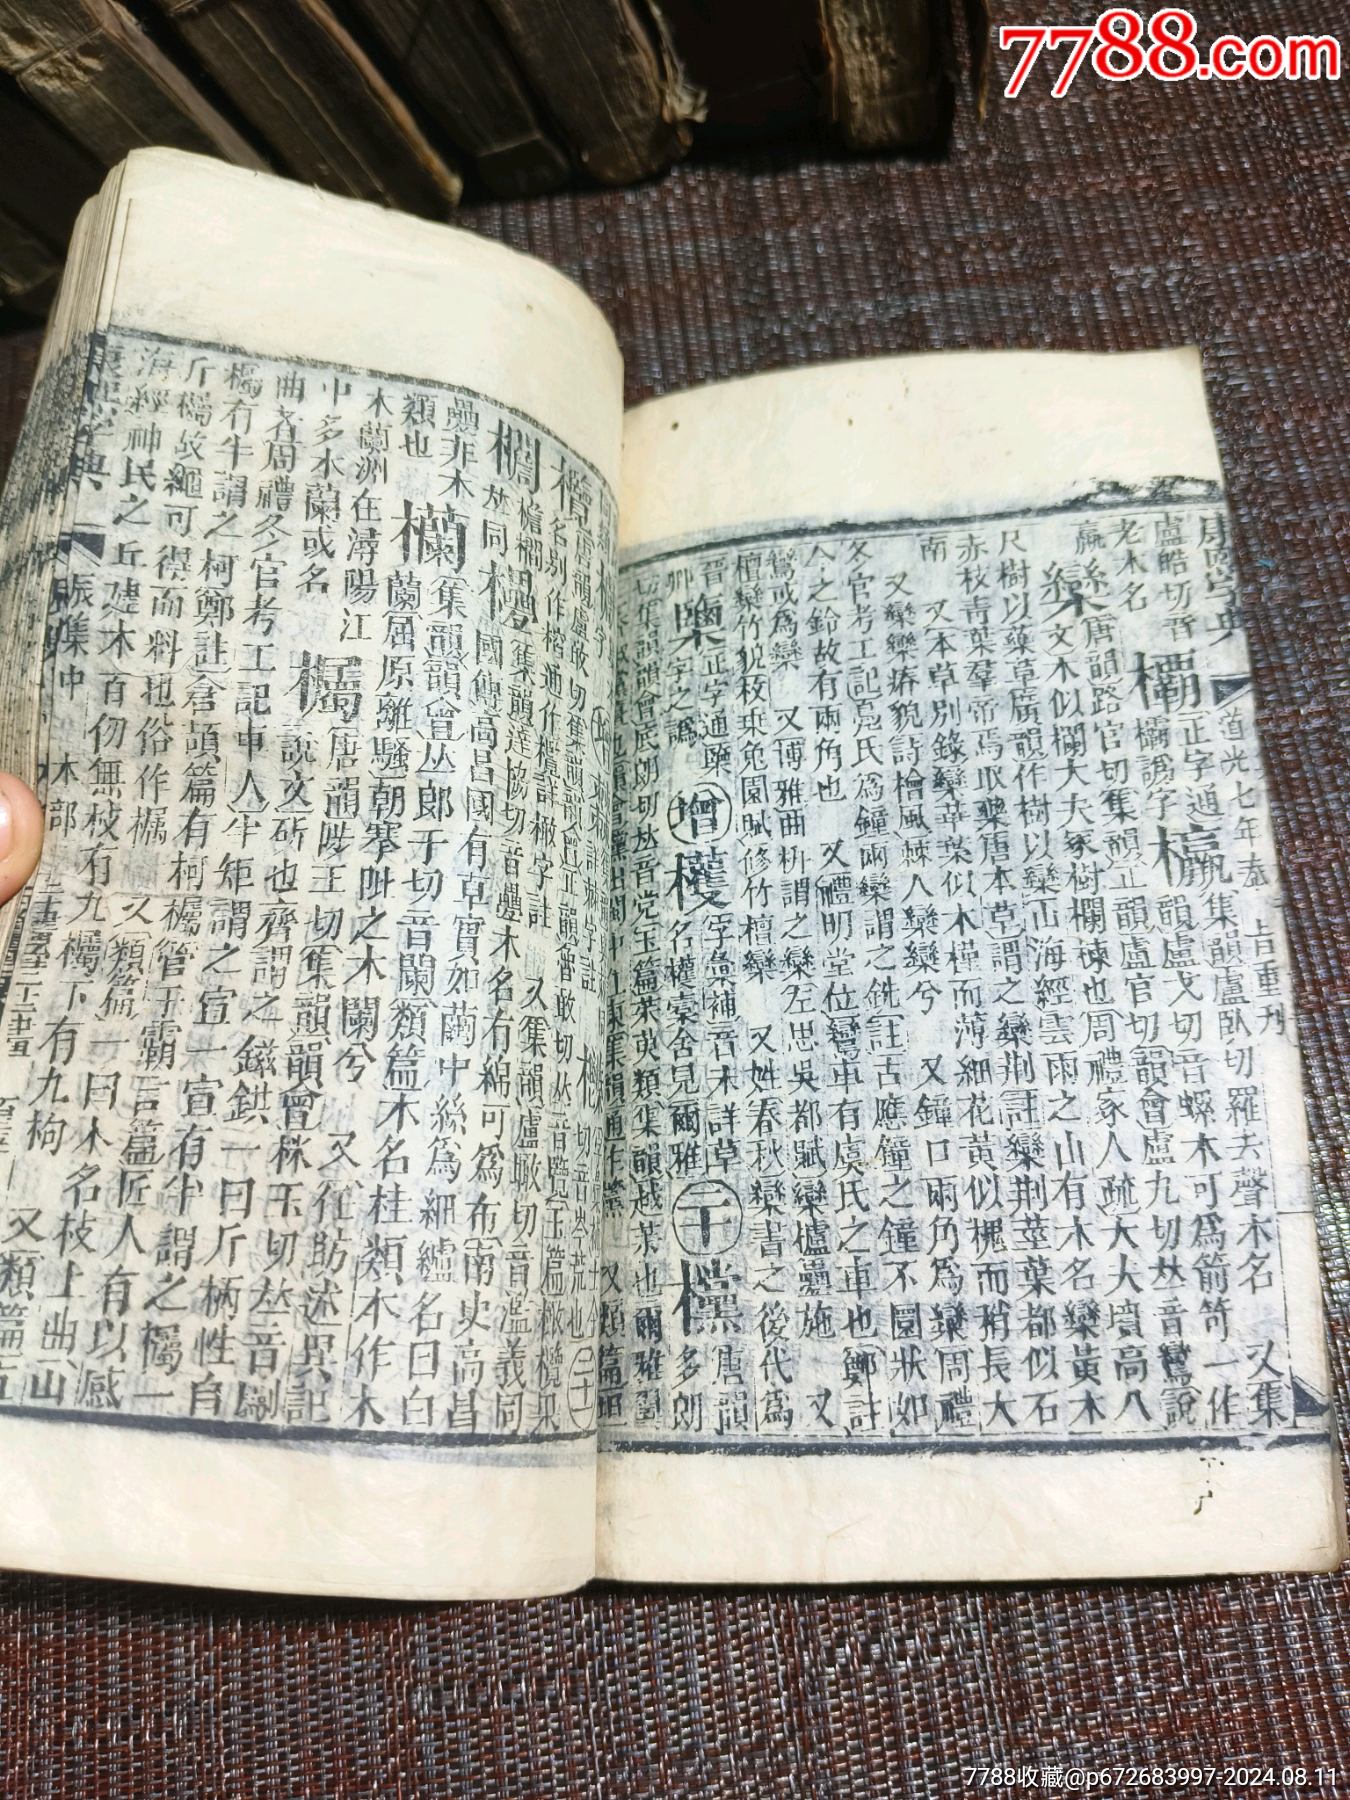 7788.com
康熙字典
道光七年奉
旨重刊
盧皓切音
老木名
欛正字通
欛譌字
㰁集韻盧臥切羅去聲木名
又集
韻盧戈切音螺木可爲箭笴一作
欒唐韻路官切集韻正韻盧官切韻會盧九切𠀤音鸞說
文木似欄大夫冢樹欄楝也周禮冢人疏大夫墳高八
尺樹以藥草廣韻作樹以欒山海經雲雨之山有木名欒黃木
赤枝靑葉羣帝焉取藥唐本草謂之欒荆註欒荆莖葉都似石
南
又本草別錄欒華葉似木槿而薄細花黃似槐而稍長大
又欒欒瘠貌詩檜風棘人欒欒兮
又鐘口兩角爲欒周禮
冬官考工記鳧氏爲鐘兩欒謂之銑註古應鐘之鐘不圜狀如
今之鈴故有兩角也
又禮明堂位鸞車有虞氏之車也鄭註
鸞或爲欒
又博雅曲枅謂之欒左思吳都賦欒櫨疊施
又
檀欒竹貌枚乗兔園賦修竹檀欒
又姓春秋欒書之後代爲
晉
卿
正字通欒
字之譌
增
欔字彙補音未詳草
名欔橐舍見爾雅
二十
欓唐韻
多朗
切集韻韻會底朗切𠀤音党玉篇茱萸類集韻越茱也爾雅翼
唐韻盧敢切集韻韻會正韻魯敢切𠀤音覽玉篇橄欖果
名別作㰖通作欖詳橄字註
又集韻盧瞰切音濫義同
檐欄
𠀤同
集韻達協切音疊木名有綿可爲布南史高昌
國傳高昌國有草實如繭中絲爲細纑名曰白
疊非木
類也
欗集韻韻會𠀤郎干切音闌類篇木名桂類木作木
蘭屈原離騷朝搴阰之木蘭兮
又任昉述異記
木蘭洲在潯陽江
中多木蘭或名
欘唐韻陟玉切集韻韻會株玉切𠀤音斸
說文斫也齊謂之鎡錤一曰斤柄性自
曲者周禮冬官考工記車人半矩謂之宣一宣有半謂之欘一
欘有半謂之柯鄭註倉頡篇有柯欘管子霸言篇匠人有以感
斤欘故繩可得而料也俗作欘
又類篇一曰木名枝上曲山
海經神民之丘建木百仞無枝有九欘下有九枸
又類篇
康熙字典
辰集中
木部
7788收藏@p672683997-2024.08.11